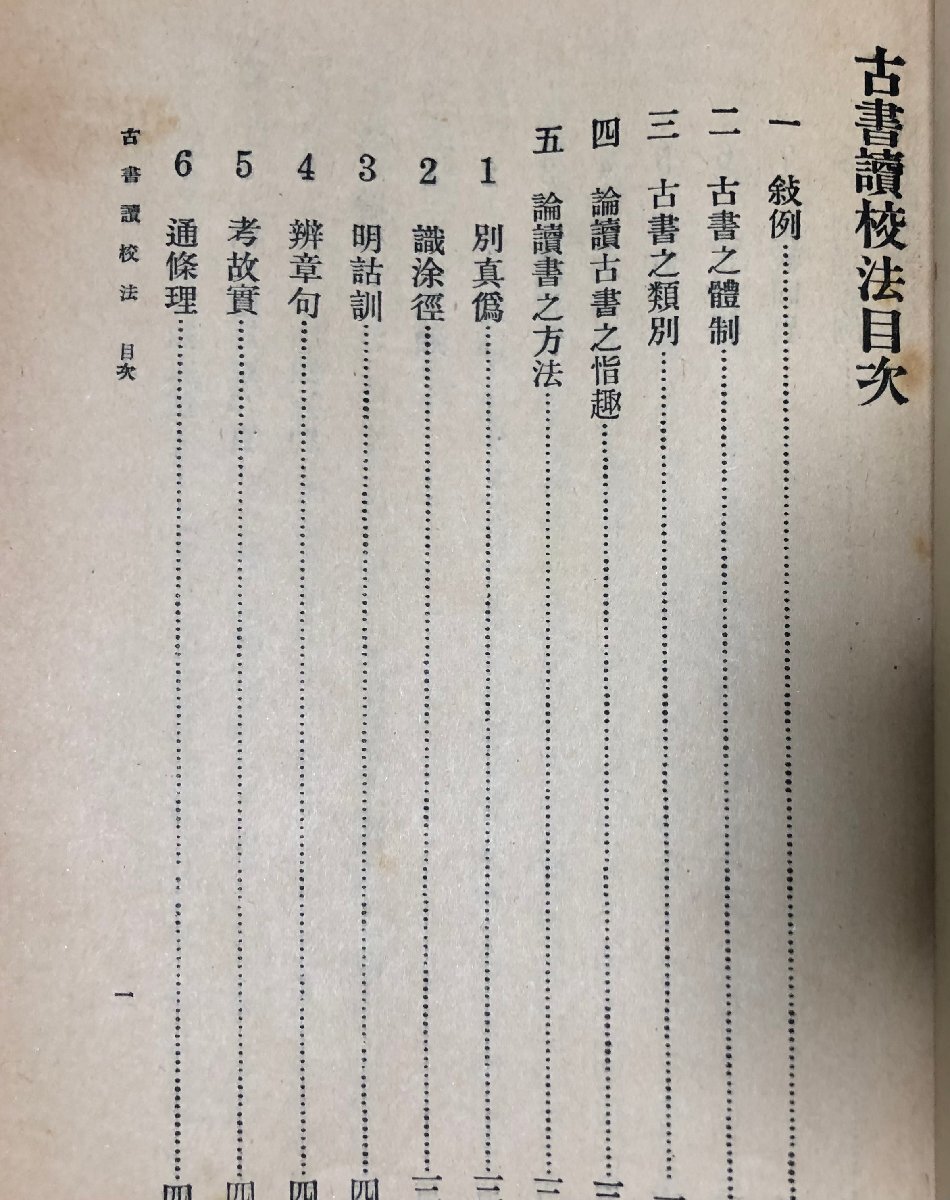 古書讀校法目次
一 敍例
二 古書之體制
三 古書之類別
四 論讀古書之恉趣
五 論讀書之方法
1 別真僞
2 識涂徑
3 明詁訓
4 辨章句
5 考故實
6 通條理
古書讀校法 目次
一